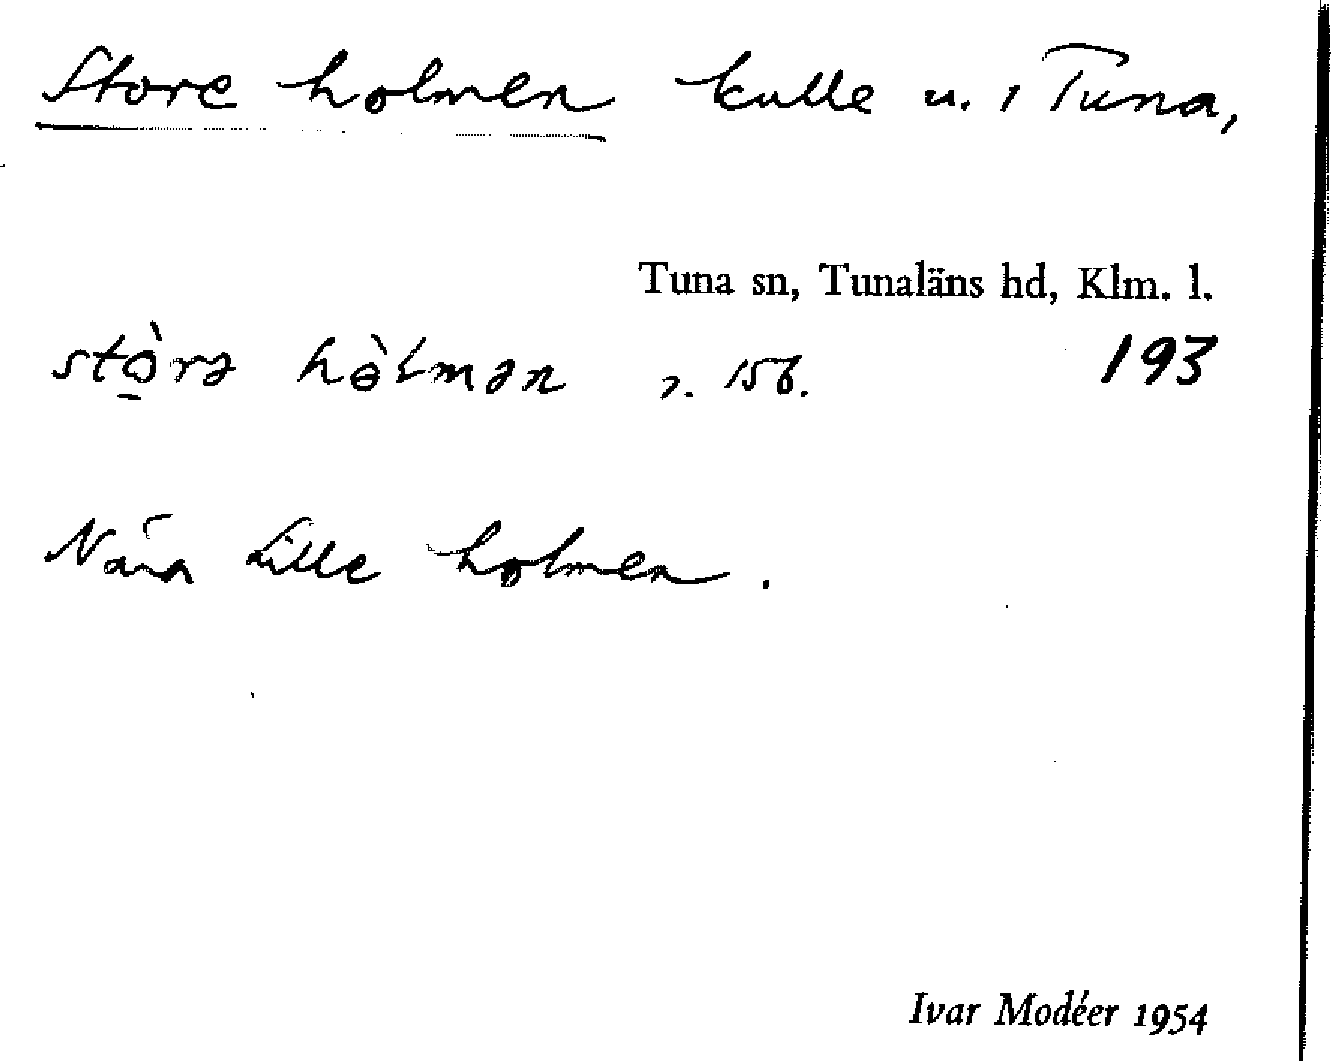 Store holmen kulle u. i Tuna,
Tuna sn, Tunaläns hd, Klm. l.
stòrə hòlmən 193
Nära Lille holmen.
Ivar Modéer 1954